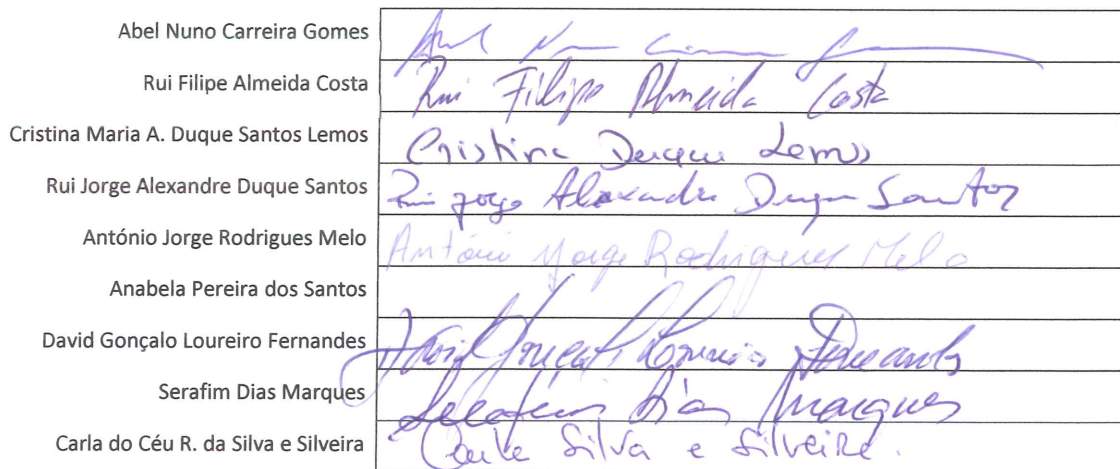 Abel Nuno Carreira Gomes Abel Nuno Carreira Gomes
Rui Filipe Almeida Costa Rui Filipe Almeida Costa
Cristina Maria A. Duque Santos Lemos Cristina Duque Lemos
Rui Jorge Alexandre Duque Santos Rui Jorge Alexandre Duque Santos
António Jorge Rodrigues Melo António Jorge Rodrigues Melo
Anabela Pereira dos Santos
David Gonçalo Loureiro Fernandes David Gonçalo Loureiro Fernandes
Serafim Dias Marques Serafim Dias Marques
Carla do Céu R. da Silva e Silveira Carla Silva e Silveira.